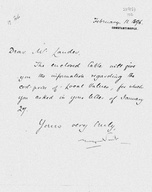 February 11 1896.
CONSTANTINOPLE
Dear Mr Lander,
The enclosed table will give
you the information regarding the
cost price of Local Valures, for which
you asked in your letter of January
29.
Yours very truly,